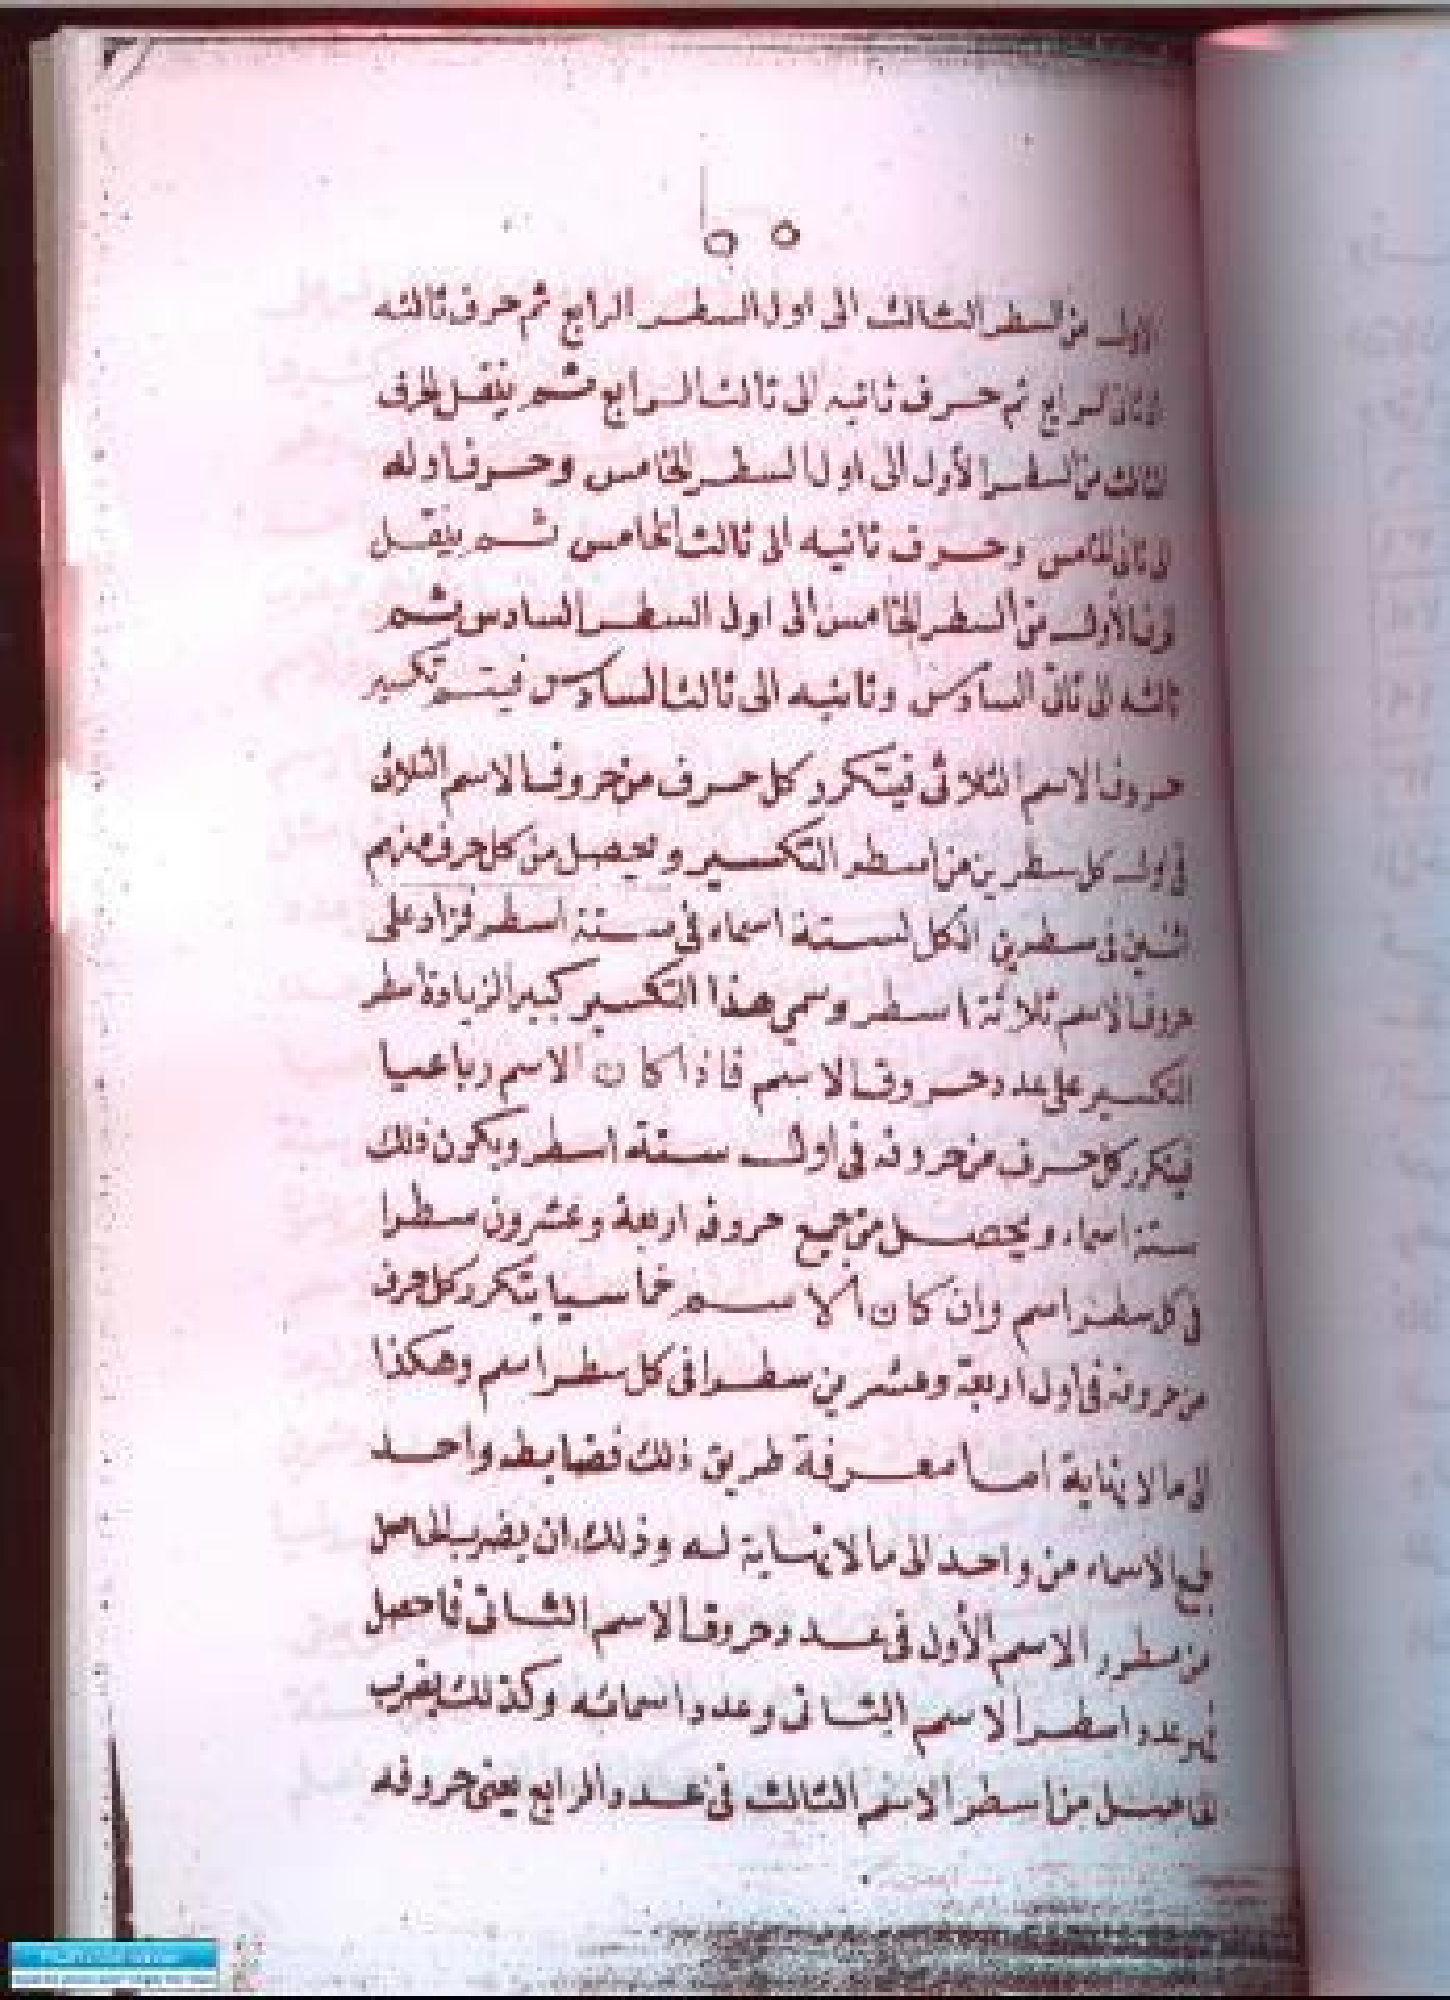 الاول من السطر الثالث الى اول السطر الرابع ثم حرف ثالثه
الى ثانى الرابع ثم حرف ثانيه الى ثالث الرابع ثم ينقل الحرف
الثالث من السطر الأول الى اول السطر الخامس وحرف اوله
الى ثانى الخامس وحرف ثانيه الى ثالث الخامس ثم ينقل
الأول من السطر الخامس الى اول السطر السادس ثم
ثالثه الى ثانى السادس وثانيه الى ثالث السادس فيتم تكسير
حروف الاسم الثلاثى فيتكرر كل حرف من حروف الاسم الثلاثى
فى اول كل سطرين من اسطر التكسير ويحصل من كل حرف منهم
اثنين فى سطرين الكل لستة اسماء فى ستة اسطر فزاد على
حروف الاسم ثلاثة اسطر وسمى هذا التكسير كبير الزيادة اسطر
التكسير على عدد حروف الاسم فاذا كان الاسم رباعيا
فيتكرر كل حرف من حروفه فى اول ستة اسطر ويكون ذلك
ستة اسماء ويحصل من جميع حروفه اربعة وعشرون سطرا
فى كل سطر اسم وان كان الاسم خماسيا يتكرر كل حرف
من حروفه فى اول اربعة وعشرين سطرا فى كل سطر اسم وهكذا
الى ما لا نهاية اما معرفة طريق ذلك فضابط واحد
لجميع الاسماء من واحد الى ما لا نهاية له وذلك ان يضرب الحاصل
من سطور الاسم الأول فى عدد حروف الاسم الثانى فما حصل
فهو عدد اسطر الاسم الثانى وعدد اسمائه وكذلك يضرب
الحاصل من اسطر الاسم الثالث فى عدد الرابع يعنى حروفه